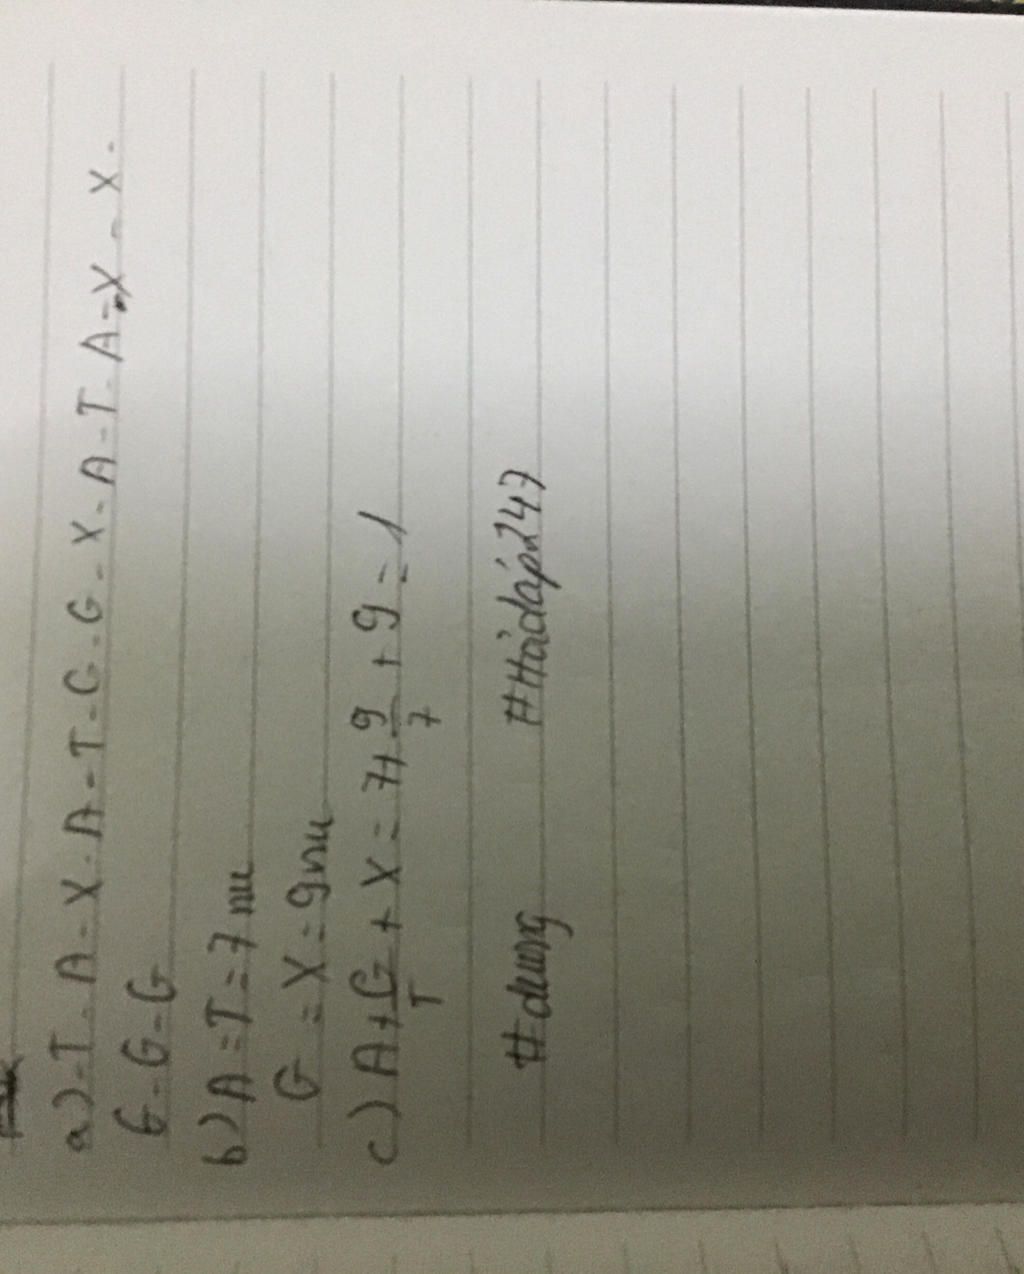 a) - T - A - X - A - T - G - G - X - A - T - A - X - X -
G - G - G
b) A = T = 7 nu
G = X = 9 nu
c) A + G/T + X = 7 + 9/7 + 9 = 1
#dung #Hỏiđáp247